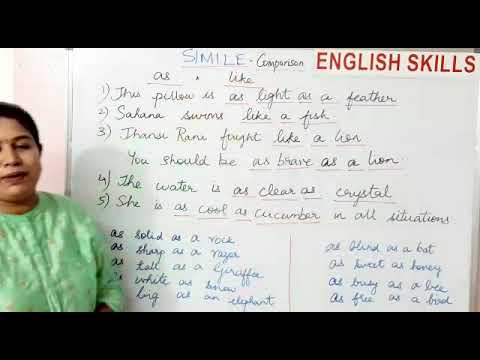 SIMILE - Comparison
ENGLISH SKILLS
as , like
1) This pillow is as light as a feather
2) Sahana swims like a fish
3) Jhansi Rani fought like a lion
You should be as brave as a lion.
4) The water is as clear as crystal
5) She is as cool as cucumber in all situations
as solid as a rock
as sharp as a razor
as tall as a Giraffe
white as snow
big as an elephant
as blind as a bat
as sweet as honey
as busy as a bee
as free as a bird